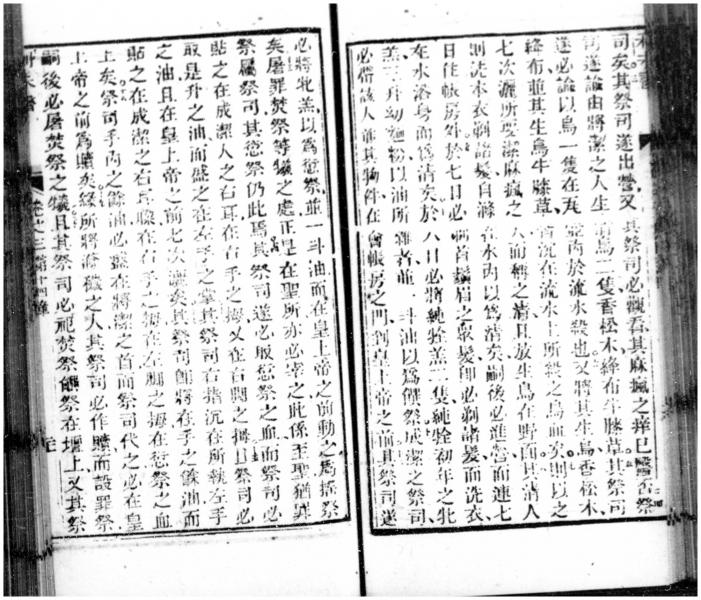 司矣其祭司遂出營又其祭司必觀看其麻瘋之痒已醫否祭
司遂諭由將潔之人生清鳥二隻香松木絳布牛膝草其祭司
遂必諭以鳥一隻在瓦壺內於流水殺也又將其生鳥香松木
絳布並其生鳥牛膝草沉在流水上所殺之鳥血矣則以之
七次灑所要潔麻瘋之人而稱之清且放生鳥在野而其清人
則洗本衣剃諸髮自滌在水內以為清矣嗣後必進營而連七
日住帳房外於七日必剃首鬚眉之眾髮即必剃諸髮而洗衣
在水浴身而為清矣於八日必將純牷羔二隻純牷初年之牝
羔三升幼麵粉以油所雜者並一斗油以為饌祭成潔之祭司
必偕該人並其物件在會帳房之門到皇上帝之前其祭司遂
必將牝羔以為愆祭並一斗油而在皇上帝之前動之為搖祭
矣屠罪焚祭等犧之處正是在聖所亦必宰之此係至聖猶罪
祭屬祭司其愆祭仍此焉其祭司遂必取愆祭之血而祭司必
貼之在成潔人之右耳在右手之拇又在右脚之拇且祭司必
取是升之油而盛之在左手之掌其祭司右指沉在所執左手
之油且在皇上帝之前七次灑矣其祭司則將在手之餘油而
貼之在成潔之右耳朶在右手之拇在左脚之拇在愆祭之血
上矣祭司手內之餘油必盡在將潔之首而祭司代之必在皇
上帝之前為贖矣緣所將淨穢之人其祭司必作贖而設罪祭
嗣後必屠焚祭之犧且其祭司必祀焚祭饌祭在壇上又其祭
卷之三 第十